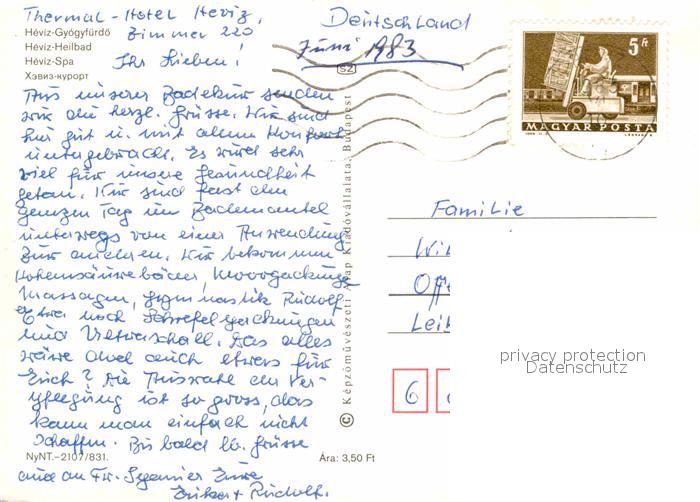 Thermal-Hotel Heviz,
Zimmer 220
Hévíz-Gyógyfürdő
Hévíz-Heilbad
Hévíz-Spa
Хэвиз-курорт
Deutschland
Juni 1983
SZ
5 ft
MAGYAR POSTA
Ihr Lieben!
Aus unserer Badekur senden
wir die herzl. Grüsse. Wir sind
hier gut u. mit allem Komfort
untergebracht. Es wird sehr
viel für unsere Gesundheit
getan. Wir sind fast den
ganzen Tag im Bademantel
unterwegs von einer Anwendung
zur anderen. Wir bekommen
Kohlensäurebäder, Moorpackung
Massagen, Gymnastik Rudolf
noch Schwefelpackungen
und Ultraschall. Das alles
wäre doch auch etwas für
Euch? Die Auswahl der Ver-
pflegung ist so gross, das
kann man einfach nicht
schaffen. Bis bald lb. Grüsse
auch an Fr. Eure
Erika + Rudolf.
Képzőművészeti Alap Kiadóvállalata, Budapest
Familie
Wi
Off
Leib
6
privacy protection
Datenschutz
NyNT.–2107/831.
Ára: 3,50 Ft